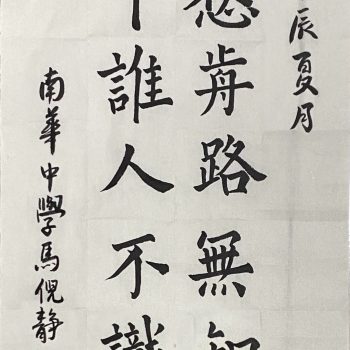 辰夏月
愁歬路無知
下誰人不識
南華中學馬倪静